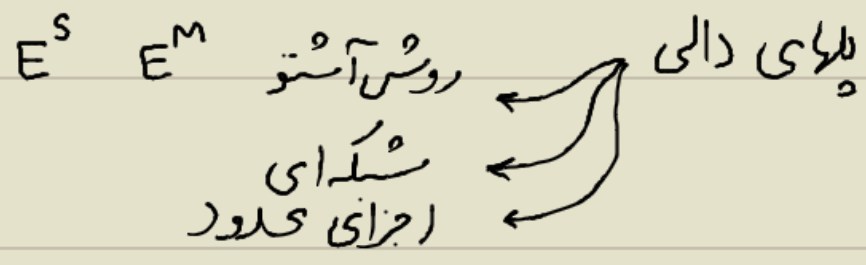 پلهای دالی روش آشتو E^M E^S
شبکه‌ای
اجزای محدود